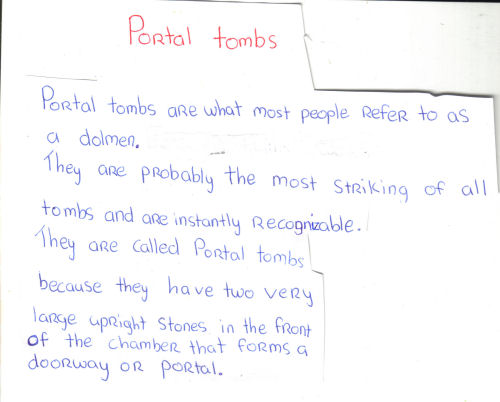 Portal tombs
Portal tombs are what most people refer to as
a dolmen.
They are probably the most striking of all
tombs and are instantly recognizable.
They are called Portal tombs
because they have two very
large upright stones in the front
of the chamber that forms a
doorway or portal.